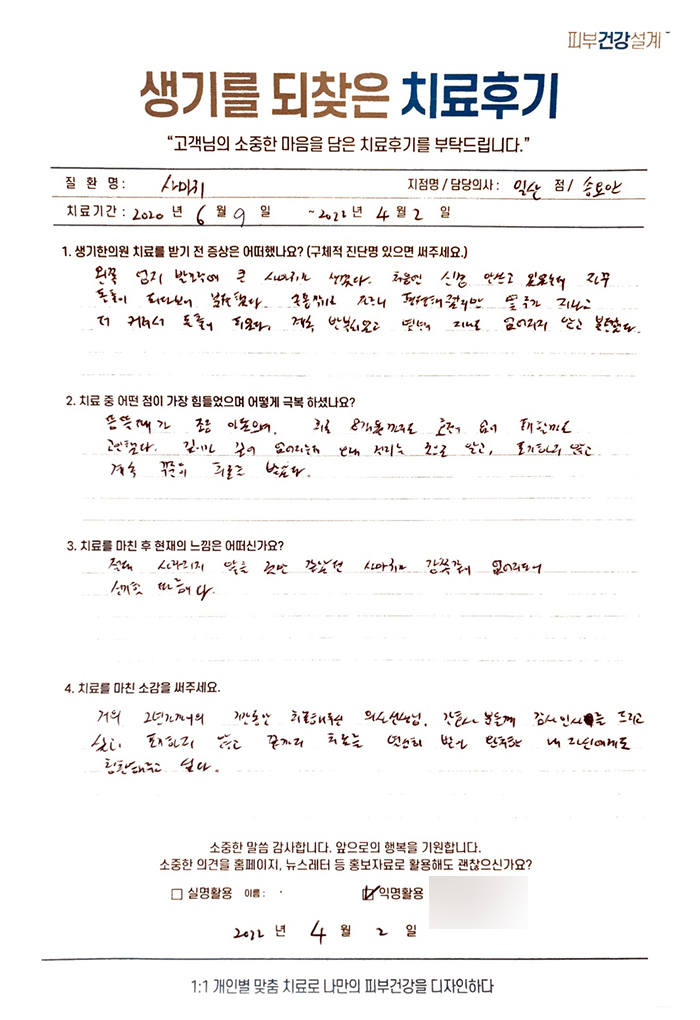 피부건강설계
생기를 되찾은 치료후기
“고객님의 소중한 마음을 담은 치료후기를 부탁드립니다.”
질 환 명 : 사마귀 지점명 / 담당의사 : 일산 점 / 송요안
치료기간 : 2020 년 6 월 9 일 ~ 2022 년 4 월 2 일
1. 생기한의원 치료를 받기 전 증상은 어떠했나요? (구체적 진단명 있으면 써주세요.)
왼쪽 엄지 발가락에 큰 사마귀가 생겼다. 처음엔 신경 안쓰고 자꾸
불편했다. 지나고
더 커져서 계속 반복되었고 없어지지 않고 불편했다.
2. 치료 중 어떤 점이 가장 힘들었으며 어떻게 극복 하셨나요?
뜸뜰때가 조금 아팠으며, 치료 8개월까지도 효과가 없어
고민했다. 포기하지 않고
계속 꾸준히 치료를 받았다.
3. 치료를 마친 후 현재의 느낌은 어떠신가요?
절대 사라지지 않을 것만 같았던 사마귀가 감쪽같이 없어져서
신기할 따름이다.
4. 치료를 마친 소감을 써주세요.
거의 2년가까이의 기간동안 치료해주신 의사선생님, 간호사 분들께 감사인사를 드리고
싶고 포기하지 않고 끝까지 치료를 받아 완치한 내 자신에게도
칭찬해주고 싶다.
소중한 말씀 감사합니다. 앞으로의 행복을 기원합니다.
소중한 의견을 홈페이지, 뉴스레터 등 홍보자료로 활용해도 괜찮으신가요?
실명활용 이름 : 익명활용
2022 년 4 월 2 일
1:1 개인별 맞춤 치료로 나만의 피부건강을 디자인하다